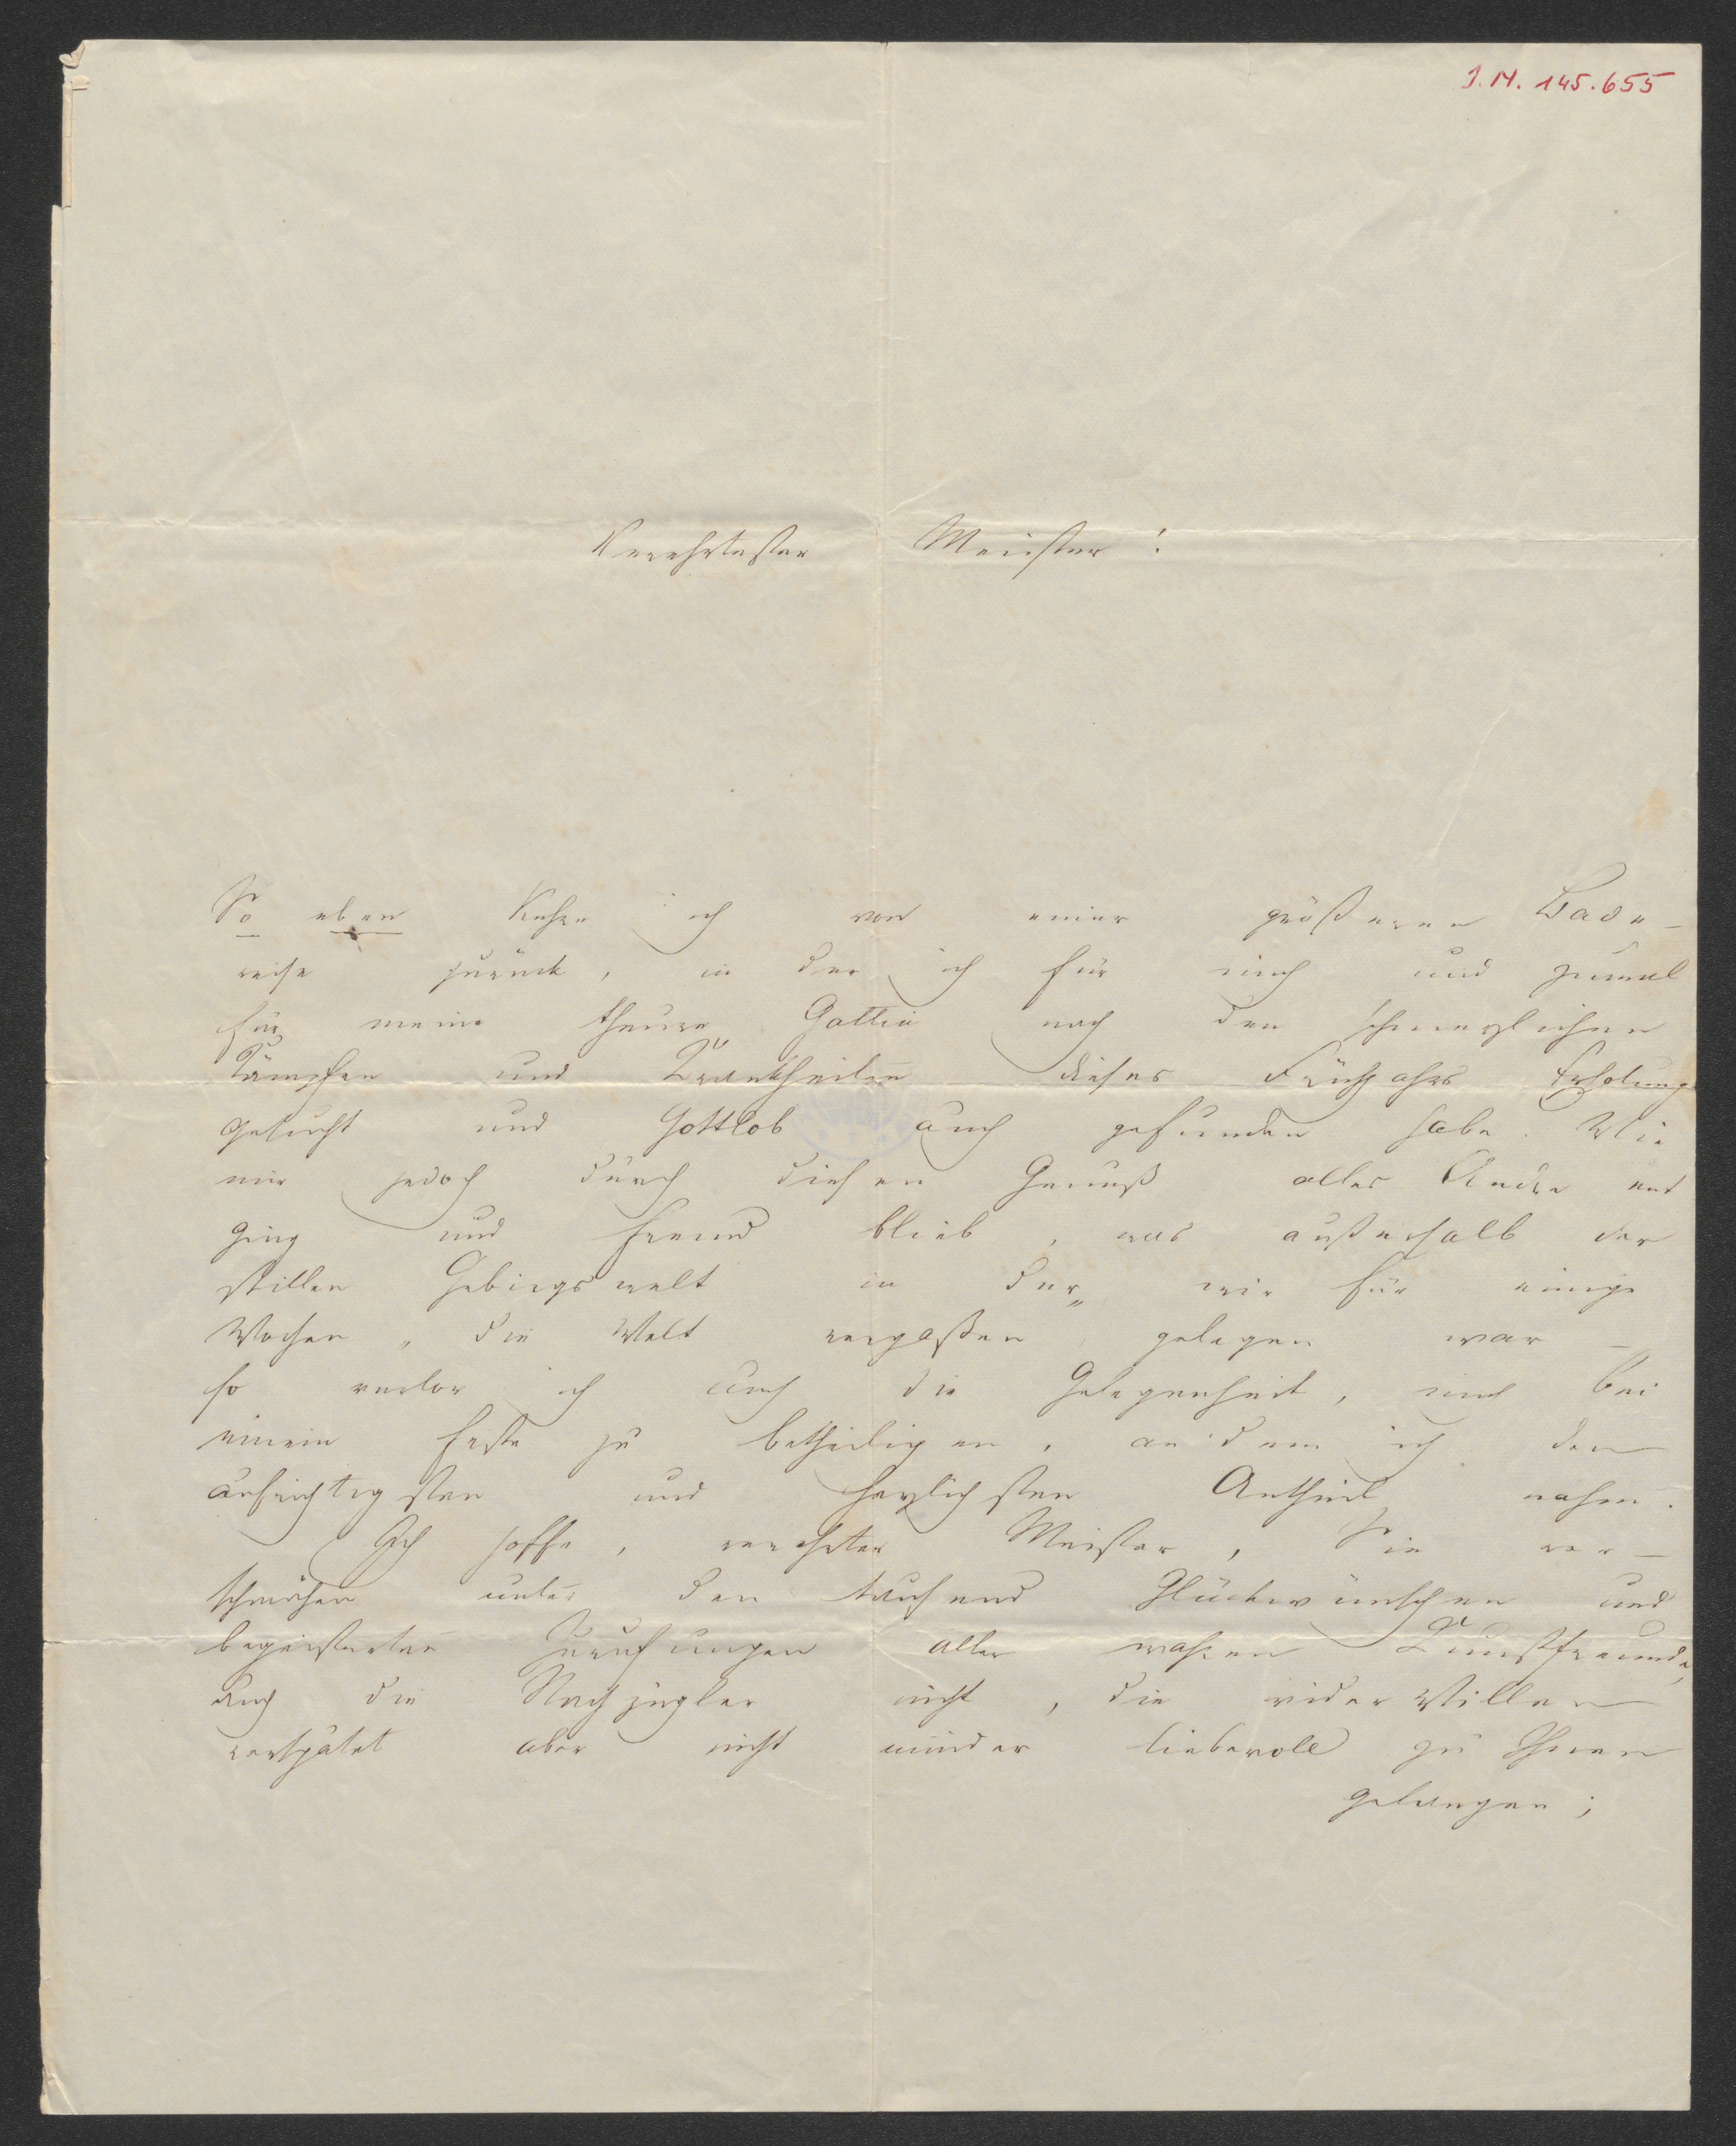 I.N. 145.655
Verehrtester Meister!
So eben kehre ich von einer größeren Bade-
reise zurück, in der ich für mich und zumal
für meine theure Gattin nach den schmerzlichen
Kämpfen und Krankheiten dieses Frühjahrs Erholung
gesucht und Gottlob auch gefunden habe. Wie
mir jedoch durch diesen Genuß alles Andre ent
ging und fremd blieb, was außerhalb der
stillen Gebirgswelt in der wir für einige
Wochen „die Welt vergaßen gelegen war –
so verlor ich auch die Gelegenheit, mich bei
einem Feste zu betheiligen, an dem ich den
aufrichtigsten und herzlichsten Antheil nahm.
Ich hoffe, verehrter Meister, Sie ver-
schmähen unter den tausend Glückwünschen und
begeisterten Zurufungen aller wahren Kunstfreunde,
auch die Nachzügler nicht, die wider Willen
verspätet aber nicht minder liebevoll zu Ihnen
gelangen;